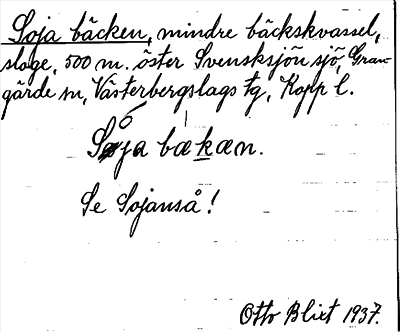 Soja bäcken, mindre bäckskvassel,
sloge, 500 m. öster Svensksjön sjö, Gran-
gärde sn, Västerbergslags tg, Kopp l.
Sója bækæn.
Se Sojanså!
Otto Blixt 1937.